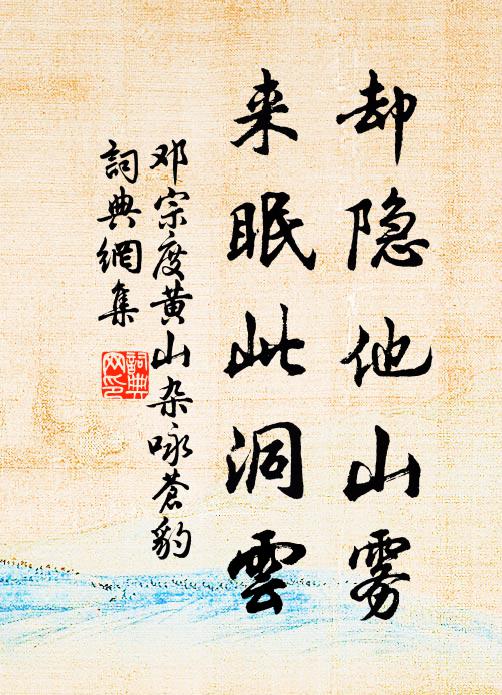 却隐他山雾
来眠此洞雲
邓宗度黄山杂咏蒼豹
詞典網集
詞典網印